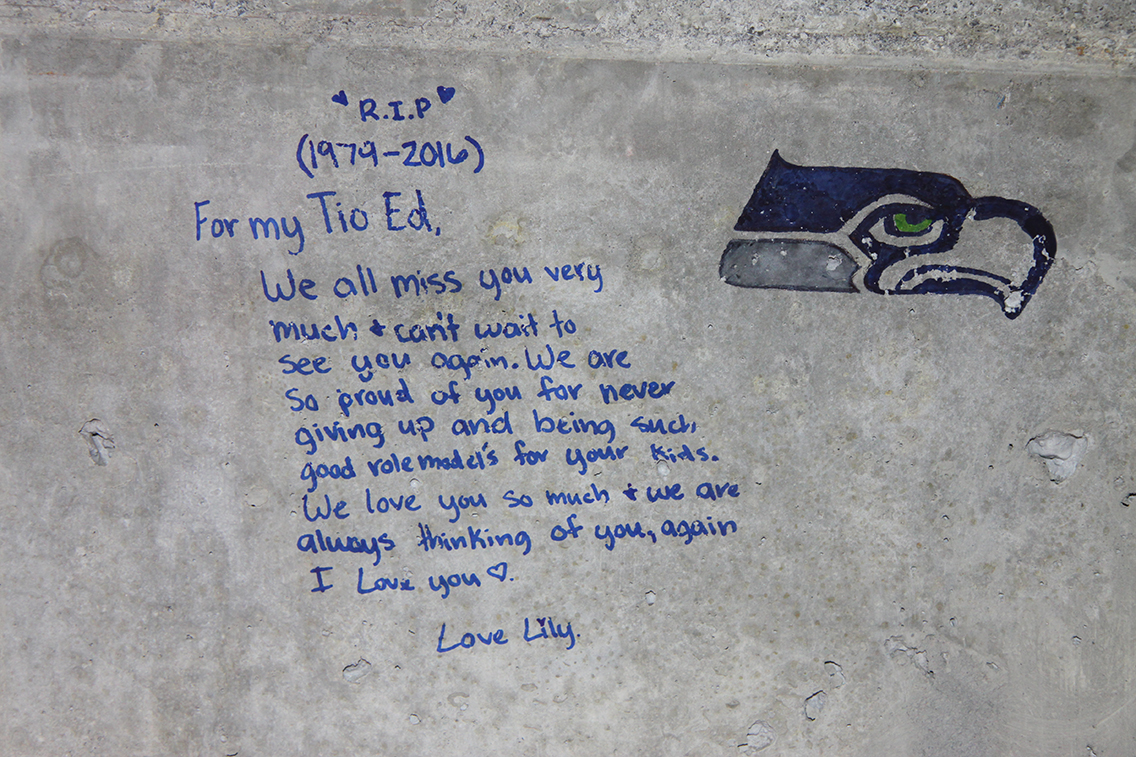 R.I.P
(1979-2016)
For my Tio Ed,
We all miss you very
much + can't wait to
see you again. We are
so proud of you for never
giving up and being such
good rolemodel's for your kids.
We love you so much + we are
always thinking of you, again
I Love you ♡.
Love Lily.